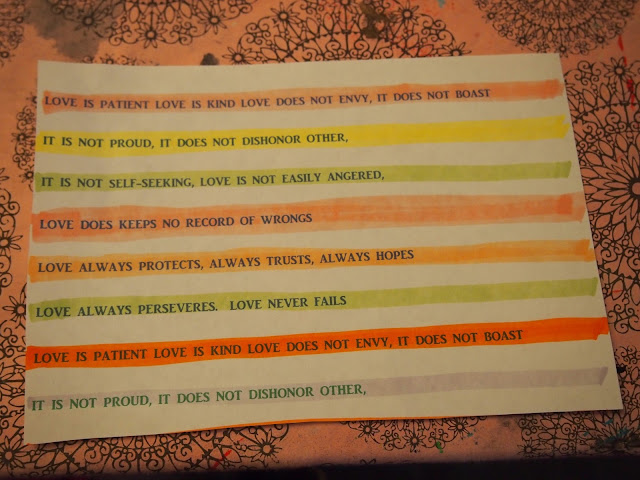 LOVE IS PATIENT LOVE IS KIND LOVE DOES NOT ENVY, IT DOES NOT BOAST
IT IS NOT PROUD, IT DOES NOT DISHONOR OTHER,
IT IS NOT SELF-SEEKING, LOVE IS NOT EASILY ANGERED,
LOVE DOES KEEPS NO RECORD OF WRONGS
LOVE ALWAYS PROTECTS, ALWAYS TRUSTS, ALWAYS HOPES
LOVE ALWAYS PERSEVERES. LOVE NEVER FAILS
LOVE IS PATIENT LOVE IS KIND LOVE DOES NOT ENVY, IT DOES NOT BOAST
IT IS NOT PROUD, IT DOES NOT DISHONOR OTHER,